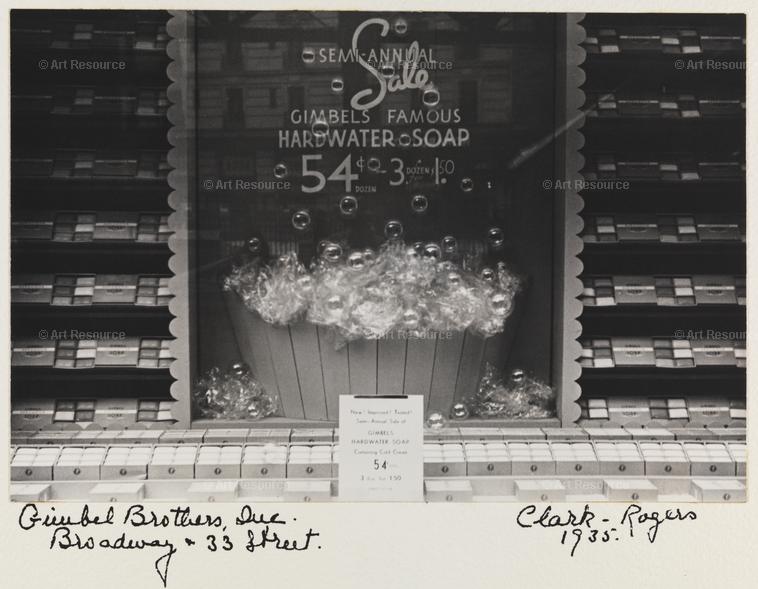 SEMI-ANNUAL
Sale
GIMBELS FAMOUS
HARDWATER SOAP
54¢ DOZEN - 3 DOZEN $1.50
New! Improved! Tested!
Semi-Annual Sale of
GIMBELS
HARDWATER SOAP
Containing Cold Cream
54¢
3 for 1.50
Gimbel Brothers, Inc.
Broadway & 33 Street.
Clark - Rogers
1935.
© Art Resource
© Art Resource
© Art Resource
© Art Resource
© Art Resource
© Art Resource
© Art Resource
© Art Resource
© Art Resource
© Art Resource